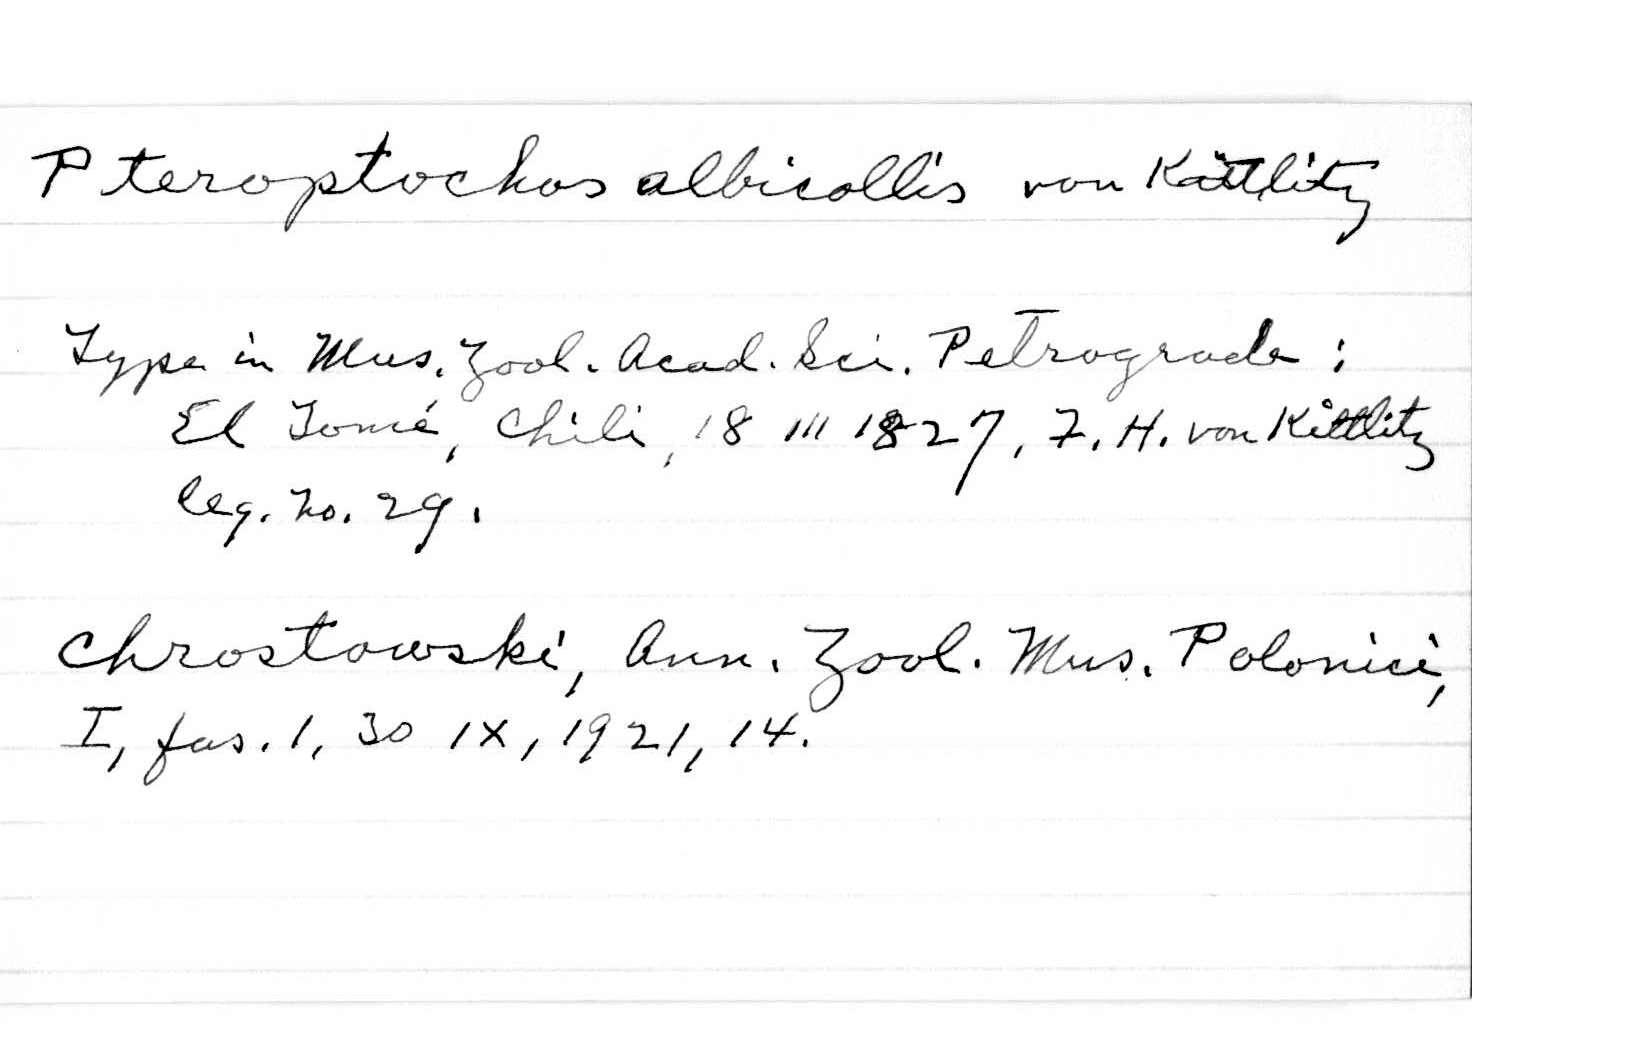 Pteroptochos albicollis von Kittlitz
Type in Mus. Zool. Acad. Sci. Petrograde:
El Tomé, Chili, 18 III 1827, F. H. von Kittlitz
leg. No. 29.
Chrostowski, Ann. Zool. Mus. Polonici,
I, fas. 1, 30 IX, 1921, 14.